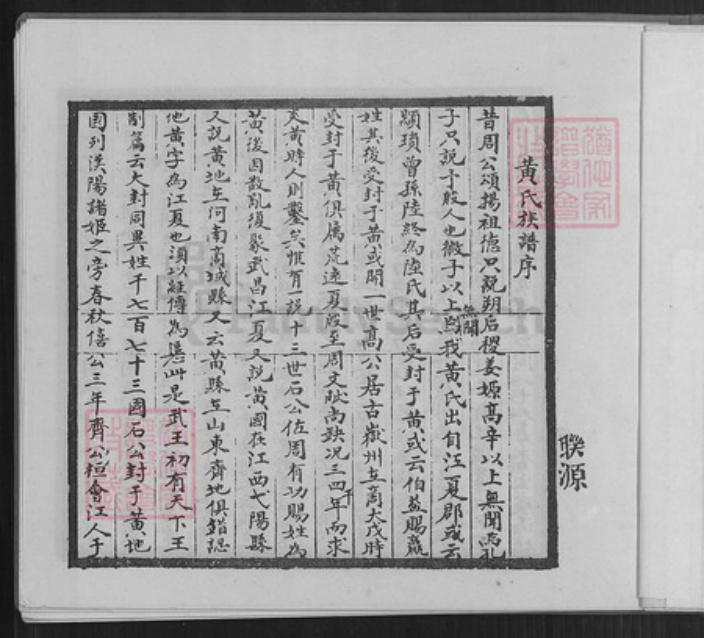 黄氏族譜序
昔周公頌揚祖德只説朔后稷姜嫄高辛以上無聞焉孔
子只説予殷人也微子以上無聞我黄氏出自江夏郡或云
顓頊曾孫陸終為陸氏其后受封于黄或云伯益賜嬴
姓其後受封于黄或開一世高公居古嶽州在商大戊時
受封于黄俱属荒遠夏殷至周文献尚缺况三四千年而求
炎黄時人則鑿矣惟有一説十三世石公佐周有功賜姓為
黄後因散亂復聚武昌江夏又説黄國在江西弋陽縣
又説黄地在河南商城縣又云黄縣在山東齊地俱錯認
他黄字為江夏也須以經傳為憑此是武王初有天下王
制篇云大封同異姓千七百七十三國石公封于黄地
國列漢陽諸姬之旁春秋僖公三年齊公桓會江人于
聨源